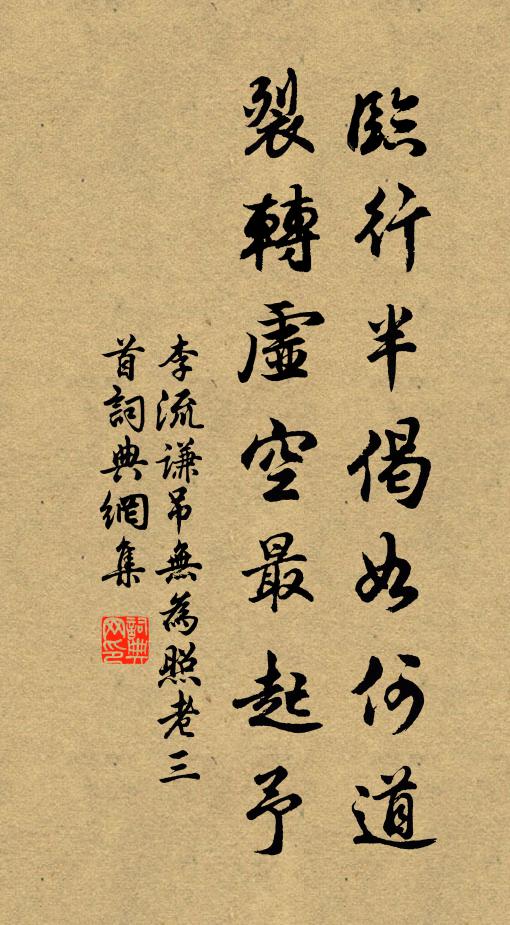 臨行半偈如何道
裂轉虛空最起予
李流謙吊無為照老三
首詞典網集
詞典网印